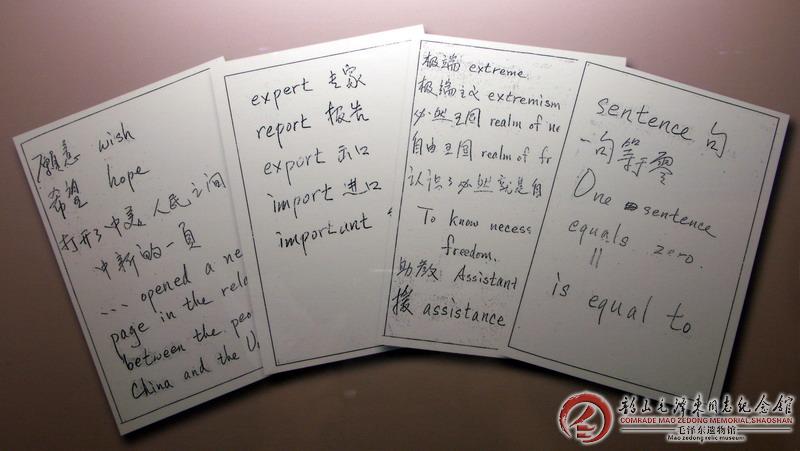 愿意 wish
希望 hope
打开了中美人民之间
中新的一頁
... opened a ne
page in the rela
between the peo
China and the U.
expert 专家
report 报告
export 出口
import 进口
important
极端 extreme
极端主义 extremism
必然王国 realm of ne
自由王国 realm of fr
认识了必然就是自
To know necess
freedom.
助教 Assistant
援 assistance
sentence 句
一句等于零
One sentence
equals zero.
is equal to
韶山毛泽东同志纪念馆
COMRADE MAO ZEDONG MEMORIAL,SHAOSHAN
毛泽东遗物馆
Mao zedong relic museum